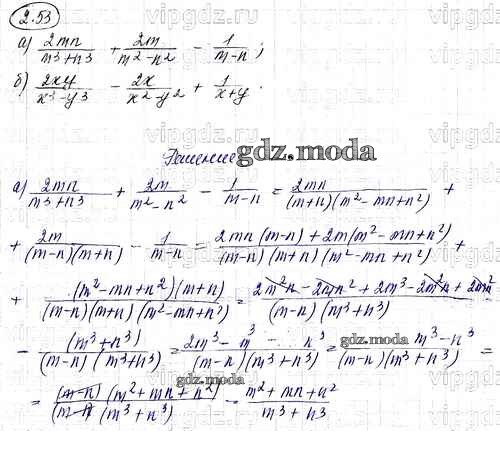 2.53
а) 2mn/(m³+n³) + 2m/(m²-n²) - 1/(m-n) ;
б) 2xy/(x³-y³) - 2x/(x²-y²) + 1/(x+y) .
Решение
gdz.moda
а) 2mn/(m³+n³) + 2m/(m²-n²) - 1/(m-n) = 2mn/((m+n)(m²-mn+n²)) +
+ 2m/((m-n)(m+n)) - 1/(m-n) = (2mn(m-n)+2m(m²-mn+n²))/((m-n)(m+n)(m²-mn+n²)) +
+ (m²-mn+n²)(m+n)/((m-n)(m+n)(m²-mn+n²)) = (2m²n-2mn²+2m³-2m²n+2mn²)/((m-n)(m³+n³))
- (m³+n³)/((m-n)(m³+n³)) = (2m³-m³ n³)/((m-n)(m³+n³)) = (m³-n³)/((m-n)(m³+n³)) =
gdz.moda
gdz.moda
= (m-n)(m²+mn+n²)/((m-n)(m³+n³)) = (m²+mn+n²)/(m³+n³)